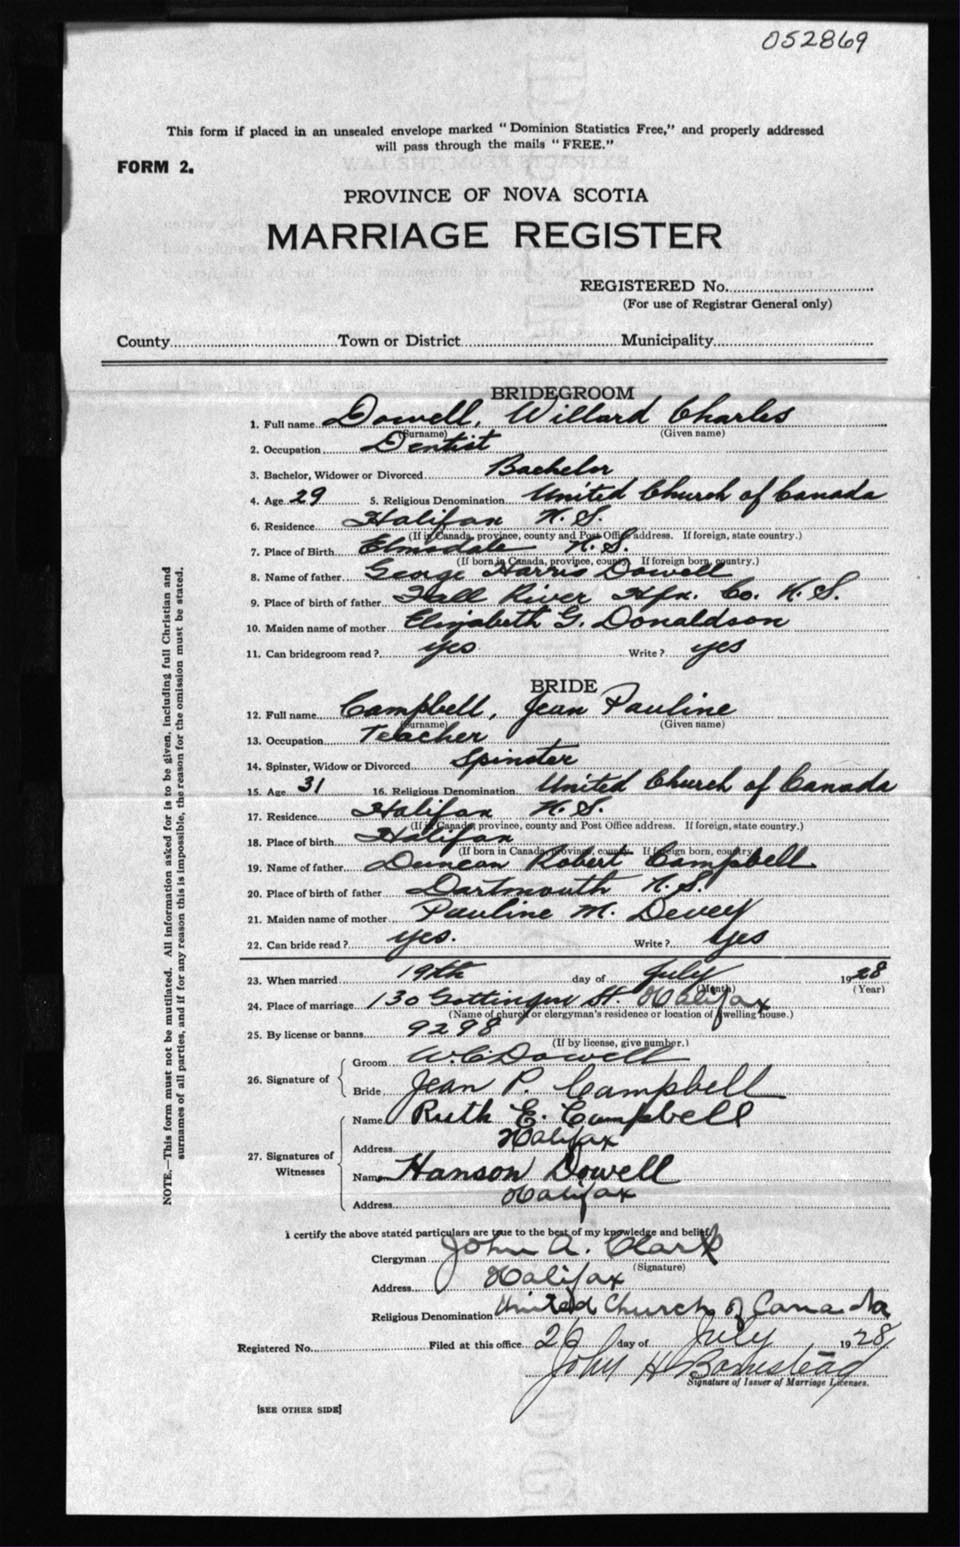 052869
This form if placed in an unsealed envelope marked "Dominion Statistics Free," and properly addressed
will pass through the mails "FREE."
FORM 2.
PROVINCE OF NOVA SCOTIA
MARRIAGE REGISTER
REGISTERED No.
(For use of Registrar General only)
County Town or District Municipality
BRIDEGROOM
1. Full name Dowell, Willard Charles
(Surname) (Given name)
2. Occupation Dentist
3. Bachelor, Widower or Divorced Bachelor
4. Age 29 5. Religious Denomination United Church of Canada
6. Residence Halifax N.S.
(If in Canada, province, county and Post Office address. If foreign, state country.)
7. Place of Birth Elmsdale N.S.
(If born in Canada, province, county. If foreign born, country.)
8. Name of father George Harris Dowell
9. Place of birth of father Fall River Hfx. Co. N.S.
10. Maiden name of mother Elizabeth G. Donaldson
11. Can bridegroom read? yes Write? yes
BRIDE
12. Full name Campbell, Jean Pauline
(Surname) (Given name)
13. Occupation Teacher
14. Spinster, Widow or Divorced Spinster
15. Age 31 16. Religious Denomination United Church of Canada
17. Residence Halifax N.S.
(If in Canada, province, county and Post Office address. If foreign, state country.)
18. Place of birth Halifax
(If born in Canada, province, county. If foreign born, country.)
19. Name of father Duncan Robert Campbell
20. Place of birth of father Dartmouth N.S.
21. Maiden name of mother Pauline M. Devey
22. Can bride read? yes. Write? yes
23. When married 19th day of July 1928
(Month) (Year)
24. Place of marriage 130 Gottingen St. Halifax
(Name of church or clergyman's residence or location of dwelling house.)
25. By license or banns 9298
(If by license, give number.)
26. Signature of Groom W.C. Dowell
Bride Jean P. Campbell
27. Signatures of Witnesses Name Ruth E. Campbell
Address Halifax
Name Hanson Dowell
Address Halifax
I certify the above stated particulars are true to the best of my knowledge and belief.
Clergyman John A. Clark
(Signature)
Address Halifax
Religious Denomination United Church of Canada
Registered No. Filed at this office 26 day of July 1928
John H Barnstead
Signature of Issuer of Marriage Licenses.
[SEE OTHER SIDE]
NOTE.—This form must not be mutilated. All information asked for is to be given, including full Christian and
surnames of all parties, and if for any reason this is impossible, the reason for the omission must be stated.